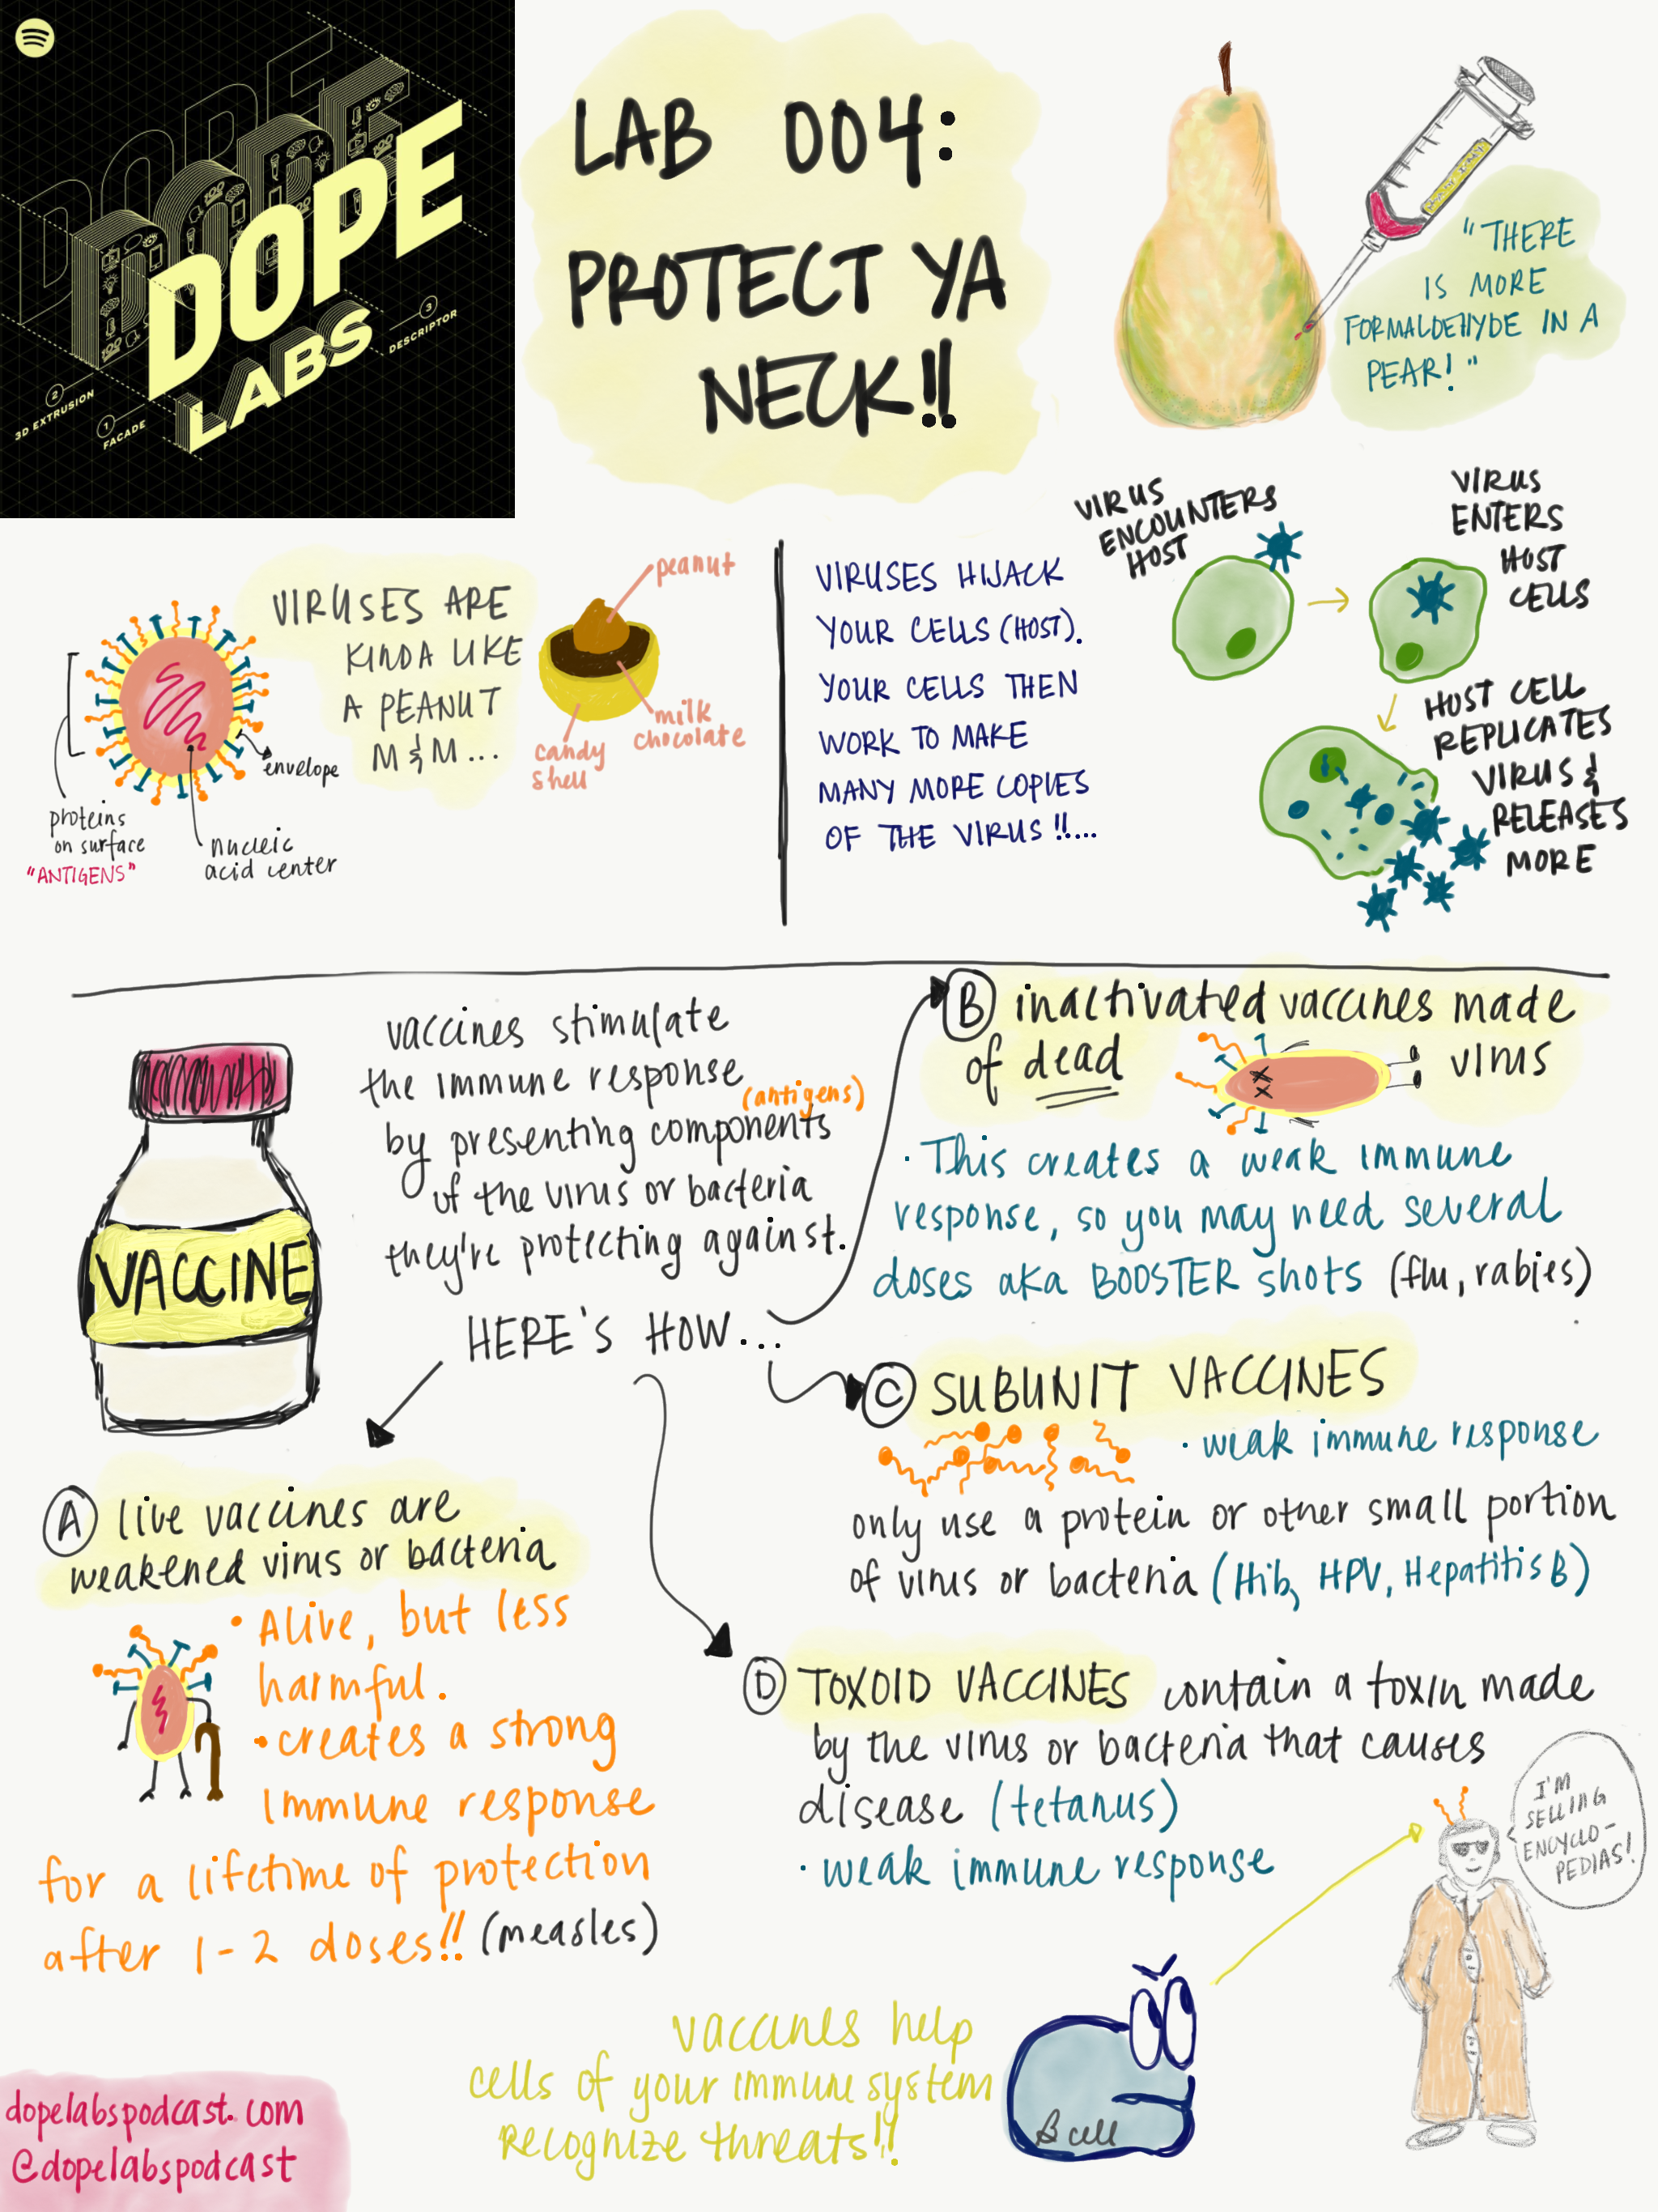 DOPE
LABS
DOPE
DOPE
3D EXTRUSION
2
1
FACADE
3
DESCRIPTOR
LAB 004:
PROTECT YA
NECK!!
"THERE
IS MORE
FORMALDEHYDE IN A
PEAR!"
VIRUSES ARE
KINDA LIKE
A PEANUT
M&M...
peanut
milk
chocolate
candy
shell
envelope
proteins
on surface
"ANTIGENS"
nucleic
acid center
VIRUSES HIJACK
YOUR CELLS (HOST).
YOUR CELLS THEN
WORK TO MAKE
MANY MORE COPIES
OF THE VIRUS!!....
VIRUS
ENCOUNTERS
HOST
VIRUS
ENTERS
HOST
CELLS
HOST CELL
REPLICATES
VIRUS &
RELEASES
MORE
VACCINE
vaccines stimulate
the immune response
(antigens)
by presenting components
of the virus or bacteria
they're protecting against.
HERE'S HOW....
A live vaccines are
weakened virus or bacteria
• Alive, but less
harmful.
• creates a strong
immune response
for a lifetime of protection
after 1-2 doses!! (measles)
B inactivated vaccines made
of dead virus
• This creates a weak immune
response, so you may need several
doses aka BOOSTER shots (flu, rabies)
C SUBUNIT VACCINES
• weak immune response
only use a protein or other small portion
of virus or bacteria (Hib, HPV, Hepatitis B)
D TOXOID VACCINES contain a toxin made
by the virus or bacteria that causes
disease (tetanus)
• weak immune response
I'M
SELLING
ENCYCLO-
PEDIAS!
vaccines help
cells of your immune system
RECOGNIZE threats!!
B cell
dopelabspodcast.com
@dopelabspodcast